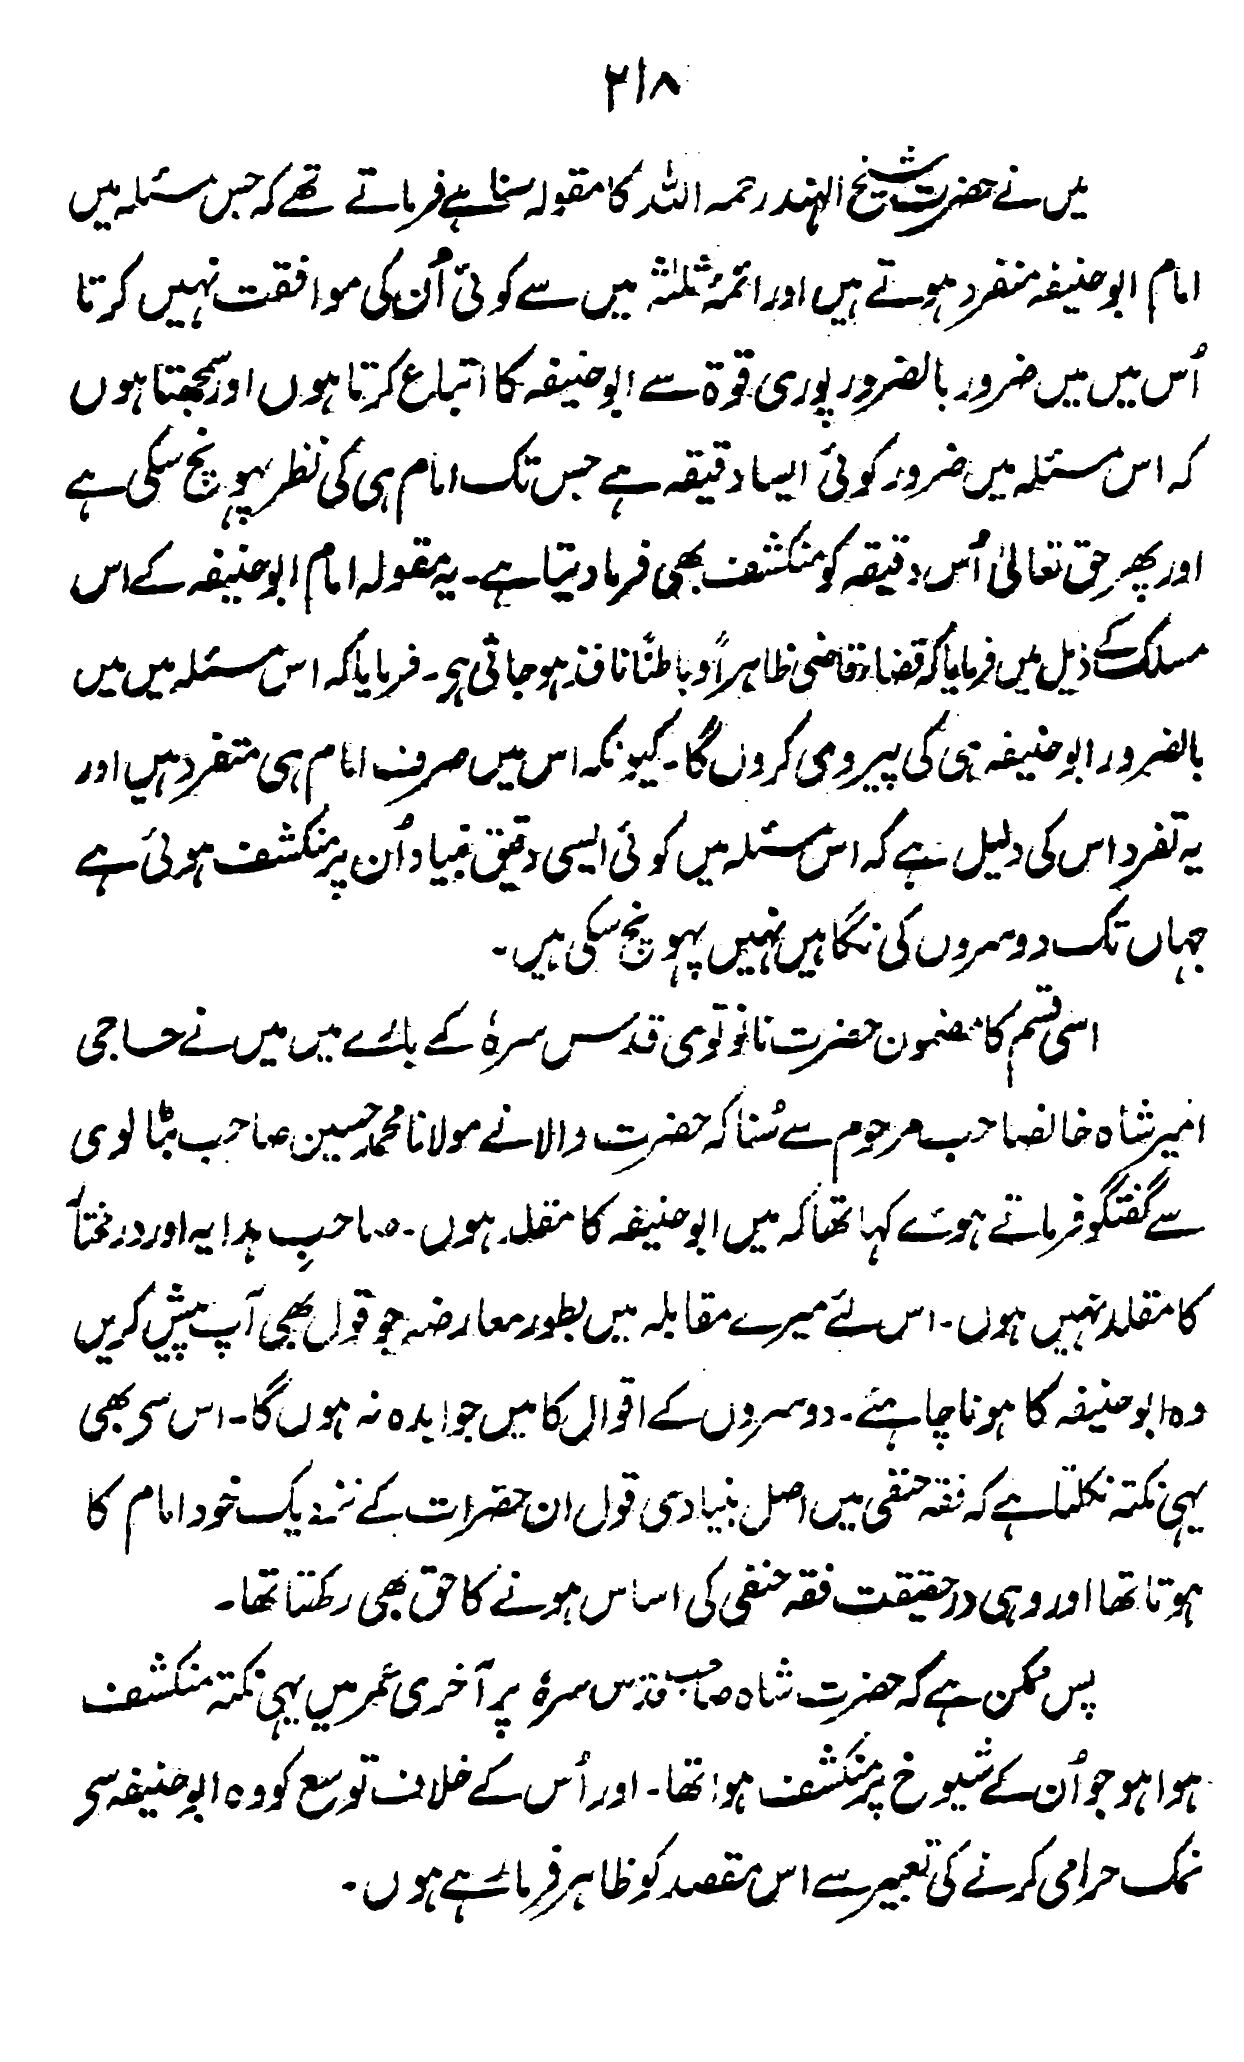 ۲۱۸
میں نے حضرت شیخ الہند رحمہ اللہ کا مقولہ سنا ہے فرماتے تھے کہ جس مسئلہ میں
امام ابو حنیفہ منفرد ہوتے ہیں اور ائمۂ ثلٰثہ میں سے کوئی اُن کی موافقت نہیں کرتا
اُس میں میں ضرور بالضرور پوری قوۃ سے ابو حنیفہ کا اتباع کرتا ہوں اور سمجھتا ہوں
کہ اس مسئلہ میں ضرور کوئی ایسا دقیقہ ہے جس تک امام ہی کی نظر پہونچ سکی ہے
اور پھر حق تعالیٰ اُس دقیقہ کو منکشف بھی فرما دیتا ہے۔ یہ مقولہ امام ابو حنیفہ کے اس
مسلک کے ذیل میں فرمایا کہ قضاء قاضی ظاہراً و باطناً نافذ ہو جاتی ہی۔ فرمایا کہ اس مسئلہ میں میں
بالضرور ابو حنیفہ ہی کی پیروی کروں گا۔ کیونکہ اس میں صرف امام ہی متفرد ہیں اور
یہ تفرد اس کی دلیل ہے کہ اس مسئلہ میں کوئی ایسی دقیق بنیاد اُن پر منکشف ہوئی ہے
جہاں تک دوسروں کی نگاہیں نہیں پہونچ سکی ہیں۔
اسی قسم کا مضمون حضرت نانوتوی قدس سرہٗ کے بارے میں میں نے حاجی
امیر شاہ خانصاحب مرحوم سے سُنا کہ حضرت والا نے مولانا محمد حسین صاحب بٹالوی
سے گفتگو فرماتے ہوئے کہا تھا کہ میں ابو حنیفہ کا مقلد ہوں۔ صاحبِ ہدایہ اور درمختار
کا مقلد نہیں ہوں۔ اس لئے میرے مقابلہ میں بطور معارضہ جو قول بھی آپ پیش کریں
وہ ابو حنیفہ کا ہونا چاہئے۔ دوسروں کے اقوال کا میں جوابدہ نہ ہوں گا۔ اس سی بھی
یہی نکتہ نکلتا ہے کہ فقہ حنفی میں اصل بنیادی قول ان حضرات کے نزدیک خود امام کا
ہوتا تھا اور وہی درحقیقت فقہ حنفی کی اساس ہونے کا حق بھی رکھتا تھا۔
پس ممکن ہے کہ حضرت شاہ صاحب قدس سرہٗ پر آخری عمر میں یہی نکتہ منکشف
ہوا ہو جو اُن کے شیوخ پر منکشف ہوا تھا۔ اور اُس کے خلاف توسع کو وہ ابو حنیفہ سی
نمک حرامی کرنے کی تعبیر سے اس مقصد کو ظاہر فرما رہے ہوں۔